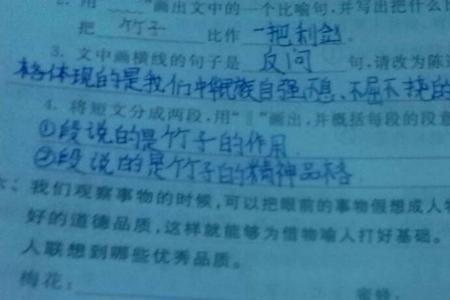 2. 用"﹏"画出文中的一个比喻句,并写出把什么比
把 竹子 比作 一把利剑。
3. 文中画横线的句子是 反问 句,请改为陈述
格体现的是我们中华民族自强不息、不屈不挠的
4. 将短文分成两段,用"‖"画出,并概括每段的段意
①段说的是竹子的作用
②段说的是竹子的精神品格
六、我们观察事物的时候,可以把眼前的事物假想成人物
好的道德品质,这样就能够为借物喻人打好基础。
人联想到哪些优秀品质。
梅花: